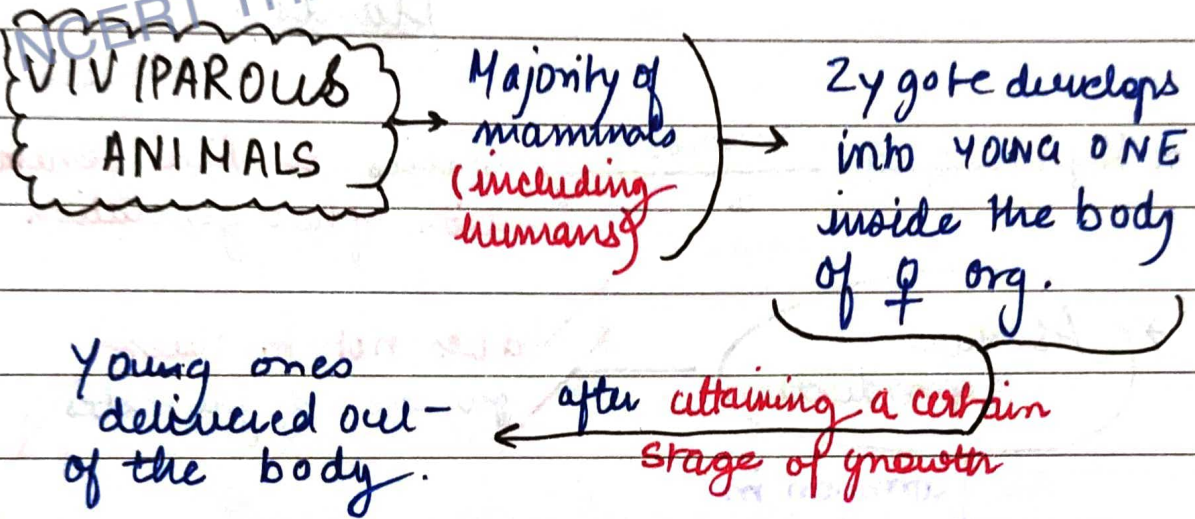 NCERT
VIVIPAROUS
ANIMALS
Majority of
mammals
(including
humans)
Zygote develops
into YOUNG ONE
inside the body
of ♀ org.
after attaining a certain
stage of growth
Young ones
delivered out
of the body.